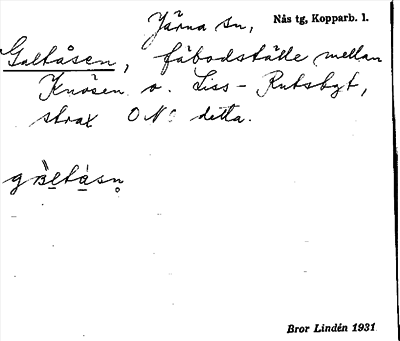 Järna sn, Nås tg, Kopparb. l.
Galtåsen, fäbodställe mellan
Knösen o. Liss-Rutsbyt,
strax O N: detta.
Bror Lindén 1931